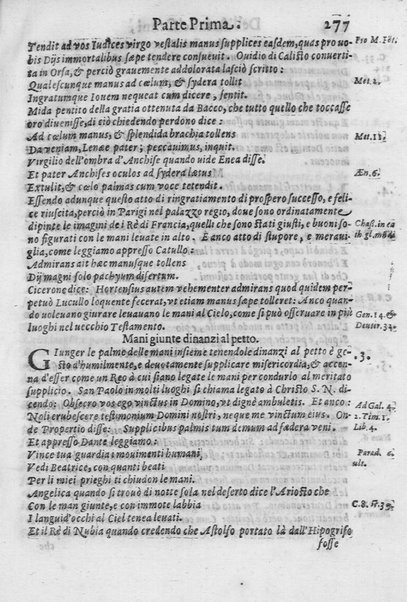 Parte Prima. 277
Tendit ad vos Iudices virgo vestalis manus supplices easdem, quas pro uo-
bis Dijs immortalibus sæpe tendere consueuit. Ouidio di Calisto conuerti-
ta in Orsa, & perciò grauemente addolorata lasciò scritto:
Qualescunque manus ad cœlum, & sydera tollit
Ingratumque Iouem nequeat cum dicere, sentit.
Mida penitito della gratia ottenuta da Bacco, che tutto quello che toccasse
oro diuenisse, di ciò chiedendo perdono dice:
Ad cœlum manus, & splendida brachia tollens
Da veniam, Lenæe pater; peccauimus, inquit.
Virgilio dell'ombra d'Anchise quando uide Enea disse.
Et pater Anchises oculos ad sydera lætus
Extulit, & cœlo palmas cum voce tetendit.
Essendo adunque questo atto di ringratiamento di prospero successo, e feli-
ce riuscita, perciò in Parigi nel palazzo regio, doue sono ordinatamente
dipinte le imagini de i Rè di Francia, quelli che sono stati giusti, e buoni so-
no figurati con le mani leuate in alto. E anco atto di stupore, e merauì-
glia, come leggiamo appresso Catullo:
Admirans ait hæc manusque tollens
Dij magni solo pachyum disertum.
Cicerone dice: Hortensius autem vehementer admirans quod quidem per-
petuò Lucullo loquente fecerat, vt etiam manus sæpe tolleret: Anco quan-
do uoleuano giurare leuauano le mani al Cielo, come si può osseruare in più
luoghi nel uecchio Testamento.
Mani giunte dinanzi al petto.
GIunger le palme delle mani insieme tenendole dinanzi al petto è ge-
sto d'humilmente, e deuotamente supplicare misericordia, & accen-
na d'esser come un Reo à cui siano legate le mani per condurlo al meritato
supplicio. San Paolo in molti luoghi si chiama legato à Christo S. N. di-
cendo: Obsecro vos ego vinctus in Domino, vt dignè ambuletis. Et anco:
Noli erubescere testimonium Domini nostri, neque me vinctum eius. On-
de Propertio disse: Supplicibus palmis tum demum ad fœdera veni.
Et appresso Dante leggiamo:
Vince tua guardia i mouimenti humani,
Vedi Beatrice, con quanti beati
Per li miei prieghi ti chiudon le mani.
Angelica quando si trouò di notte sola nel deserto dice l'Ariosto che
Con le man giunte, e con immote labbia
I languid'occhi al Ciel tenea leuati.
Et il Rè di Nubia quando credendo che Astolfo portato là dall'Hipogrifo
fosse
Pro M. Fōt.
Met. 2.
Met. 11.
Æn. 6.
Gen. 14. &
Deuter. 32.
.3.
Ad Gal. 4.
2. Tim. 1.
Lib. 4.
Parad.
ult.